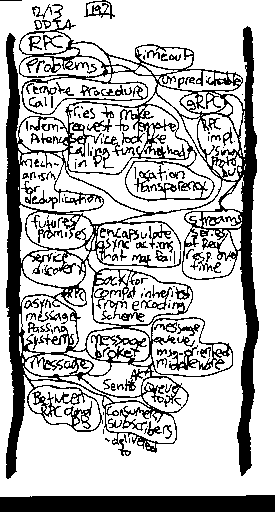 12/13 192
DDIA
RPC
timeout
Problems
unpredictable
remote procedure
call
tries to make
request to remote
service look like
calling func/methods
in PL
gRPC
RPC
impl
using
proto
buf
Idem-
potence
mech-
anism
for
deduplication
location
transparency
futures/
promises
encapsulate
async actions
that may fail
streams
series
of req/
resp over
time
service
discovery
RPC
back/for
compat inherited
from encoding
scheme
async
message-
Passing
systems
message
broker
message
queue,
msg-oriented
middleware
AKA
message
sent to
queue/
topic
Between
RPC and
DBs
consumers/
subscribers
delivered
to